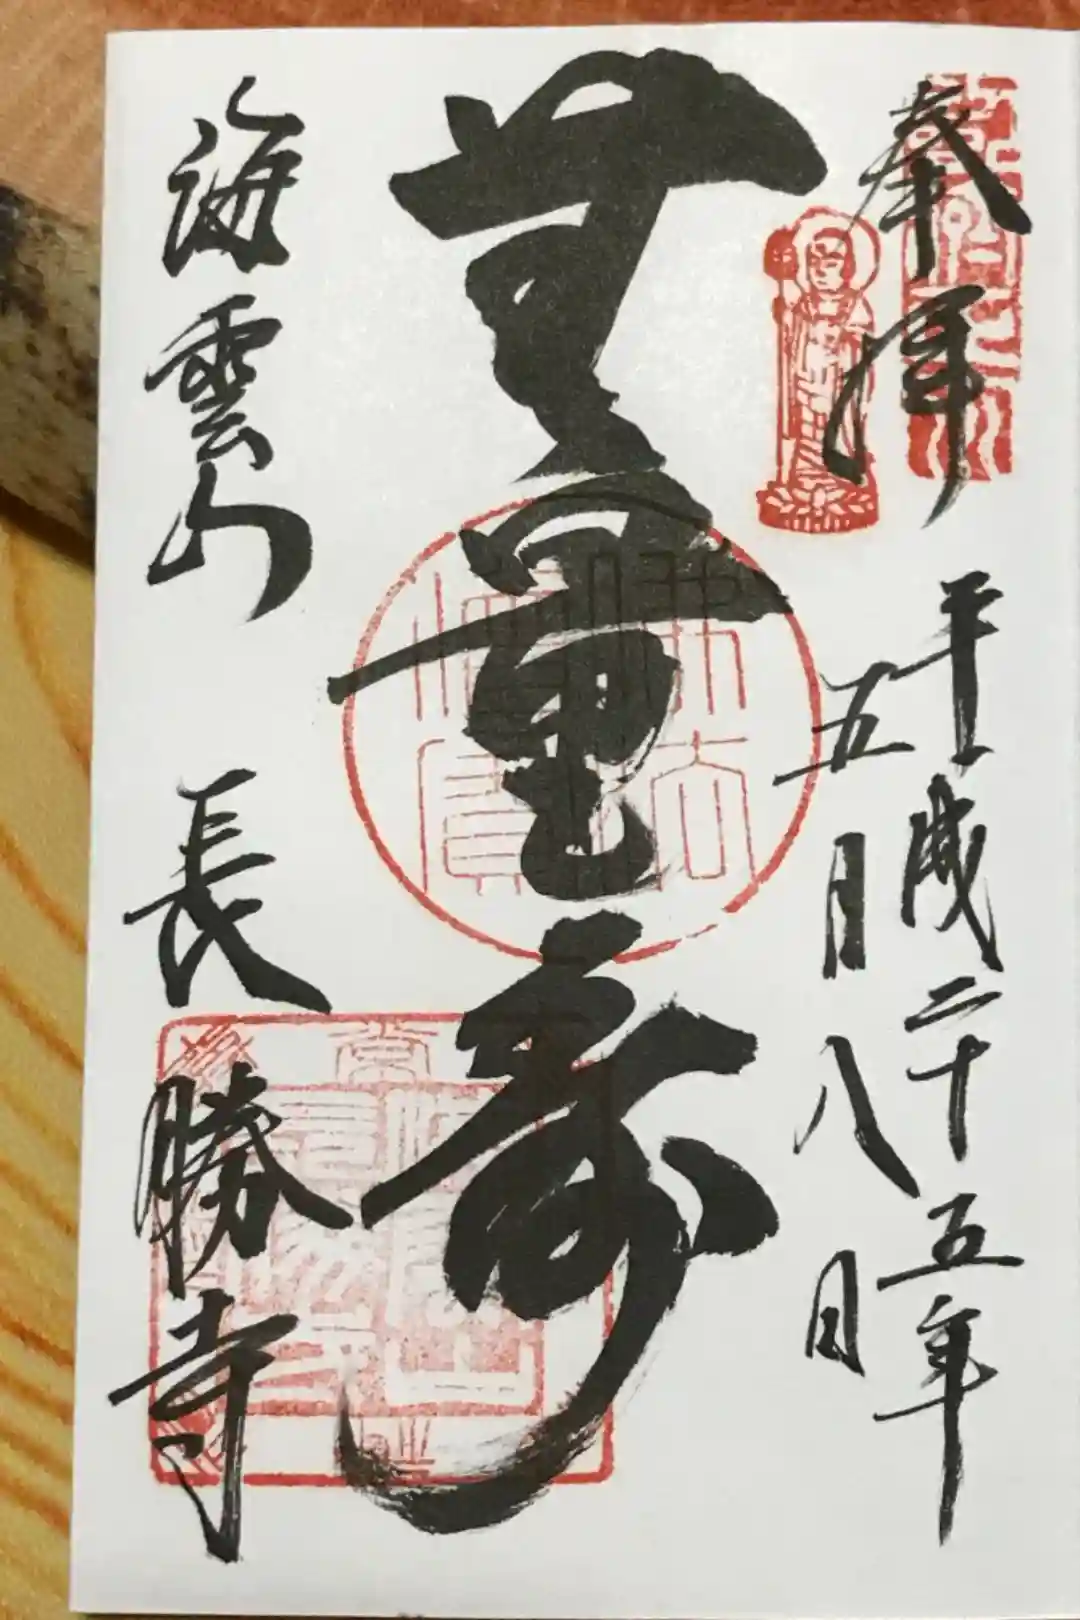 奉拝
平成二十五年
五月八日
無量寿
海雲山
長勝寺